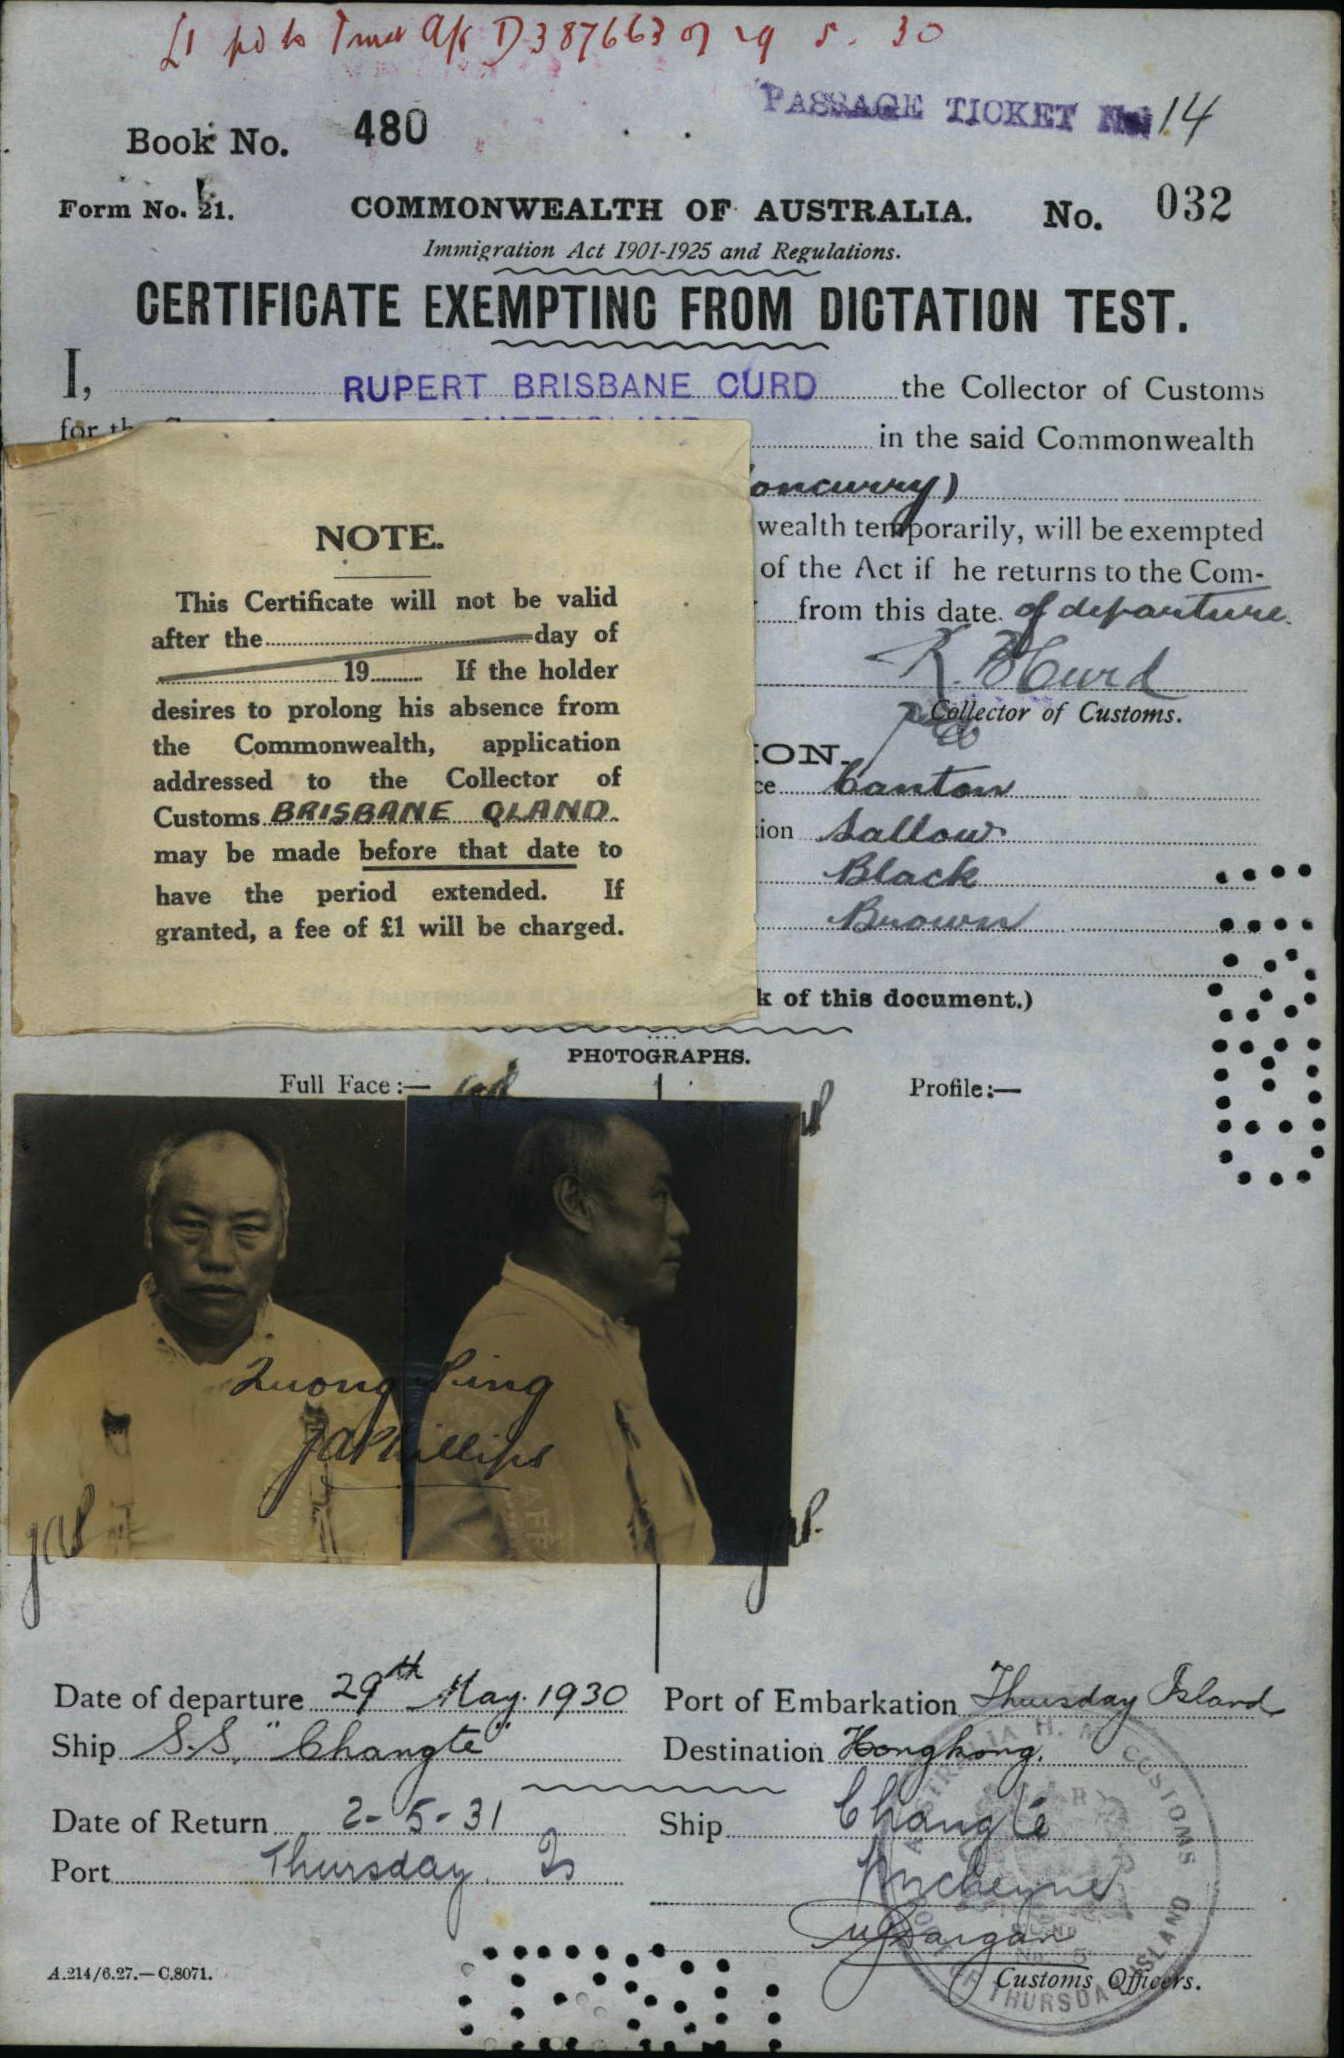 £1 pd to Trust a/c D387663 of 29 5. 30
PASSAGE TICKET No 14
Book No. 480
Form No. 21. COMMONWEALTH OF AUSTRALIA. No. 032
Immigration Act 1901-1925 and Regulations.
CERTIFICATE EXEMPTING FROM DICTATION TEST.
I, RUPERT BRISBANE CURD the Collector of Customs
for th in the said Commonwealth
oncurry)
wealth temporarily, will be exempted
of the Act if he returns to the Com-
from this date of departure.
R. B Curd
Collector of Customs.
ION.
ce Canton
tion Sallow
Black
Brown
k of this document.)
NOTE.
This Certificate will not be valid
after the day of
19 If the holder
desires to prolong his absence from
the Commonwealth, application
addressed to the Collector of
Customs BRISBANE QLAND.
may be made before that date to
have the period extended. If
granted, a fee of £1 will be charged.
PHOTOGRAPHS.
Full Face:— Profile:—
Quong Sing
JAPhillips
JAP
Date of departure 29th May. 1930 Port of Embarkation Thursday Island
Ship S.S. "Changte" Destination Hongkong.
Date of Return 2-5-31 Ship Changte
Port Thursday Is
Customs Officers.
AUSTRALIA H. M. CUSTOMS
THURSDAY ISLAND
A.214/6.27.—C.8071.